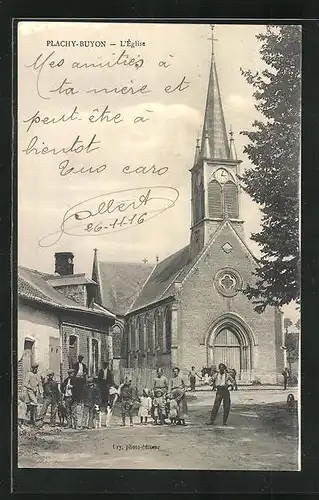 PLACHY-BUYON – L'Église
Mes amitiés à
ta mère et
peut-être à
bientôt
Tuo caro
Albert
26-11-16
Cry, photo-éditeur